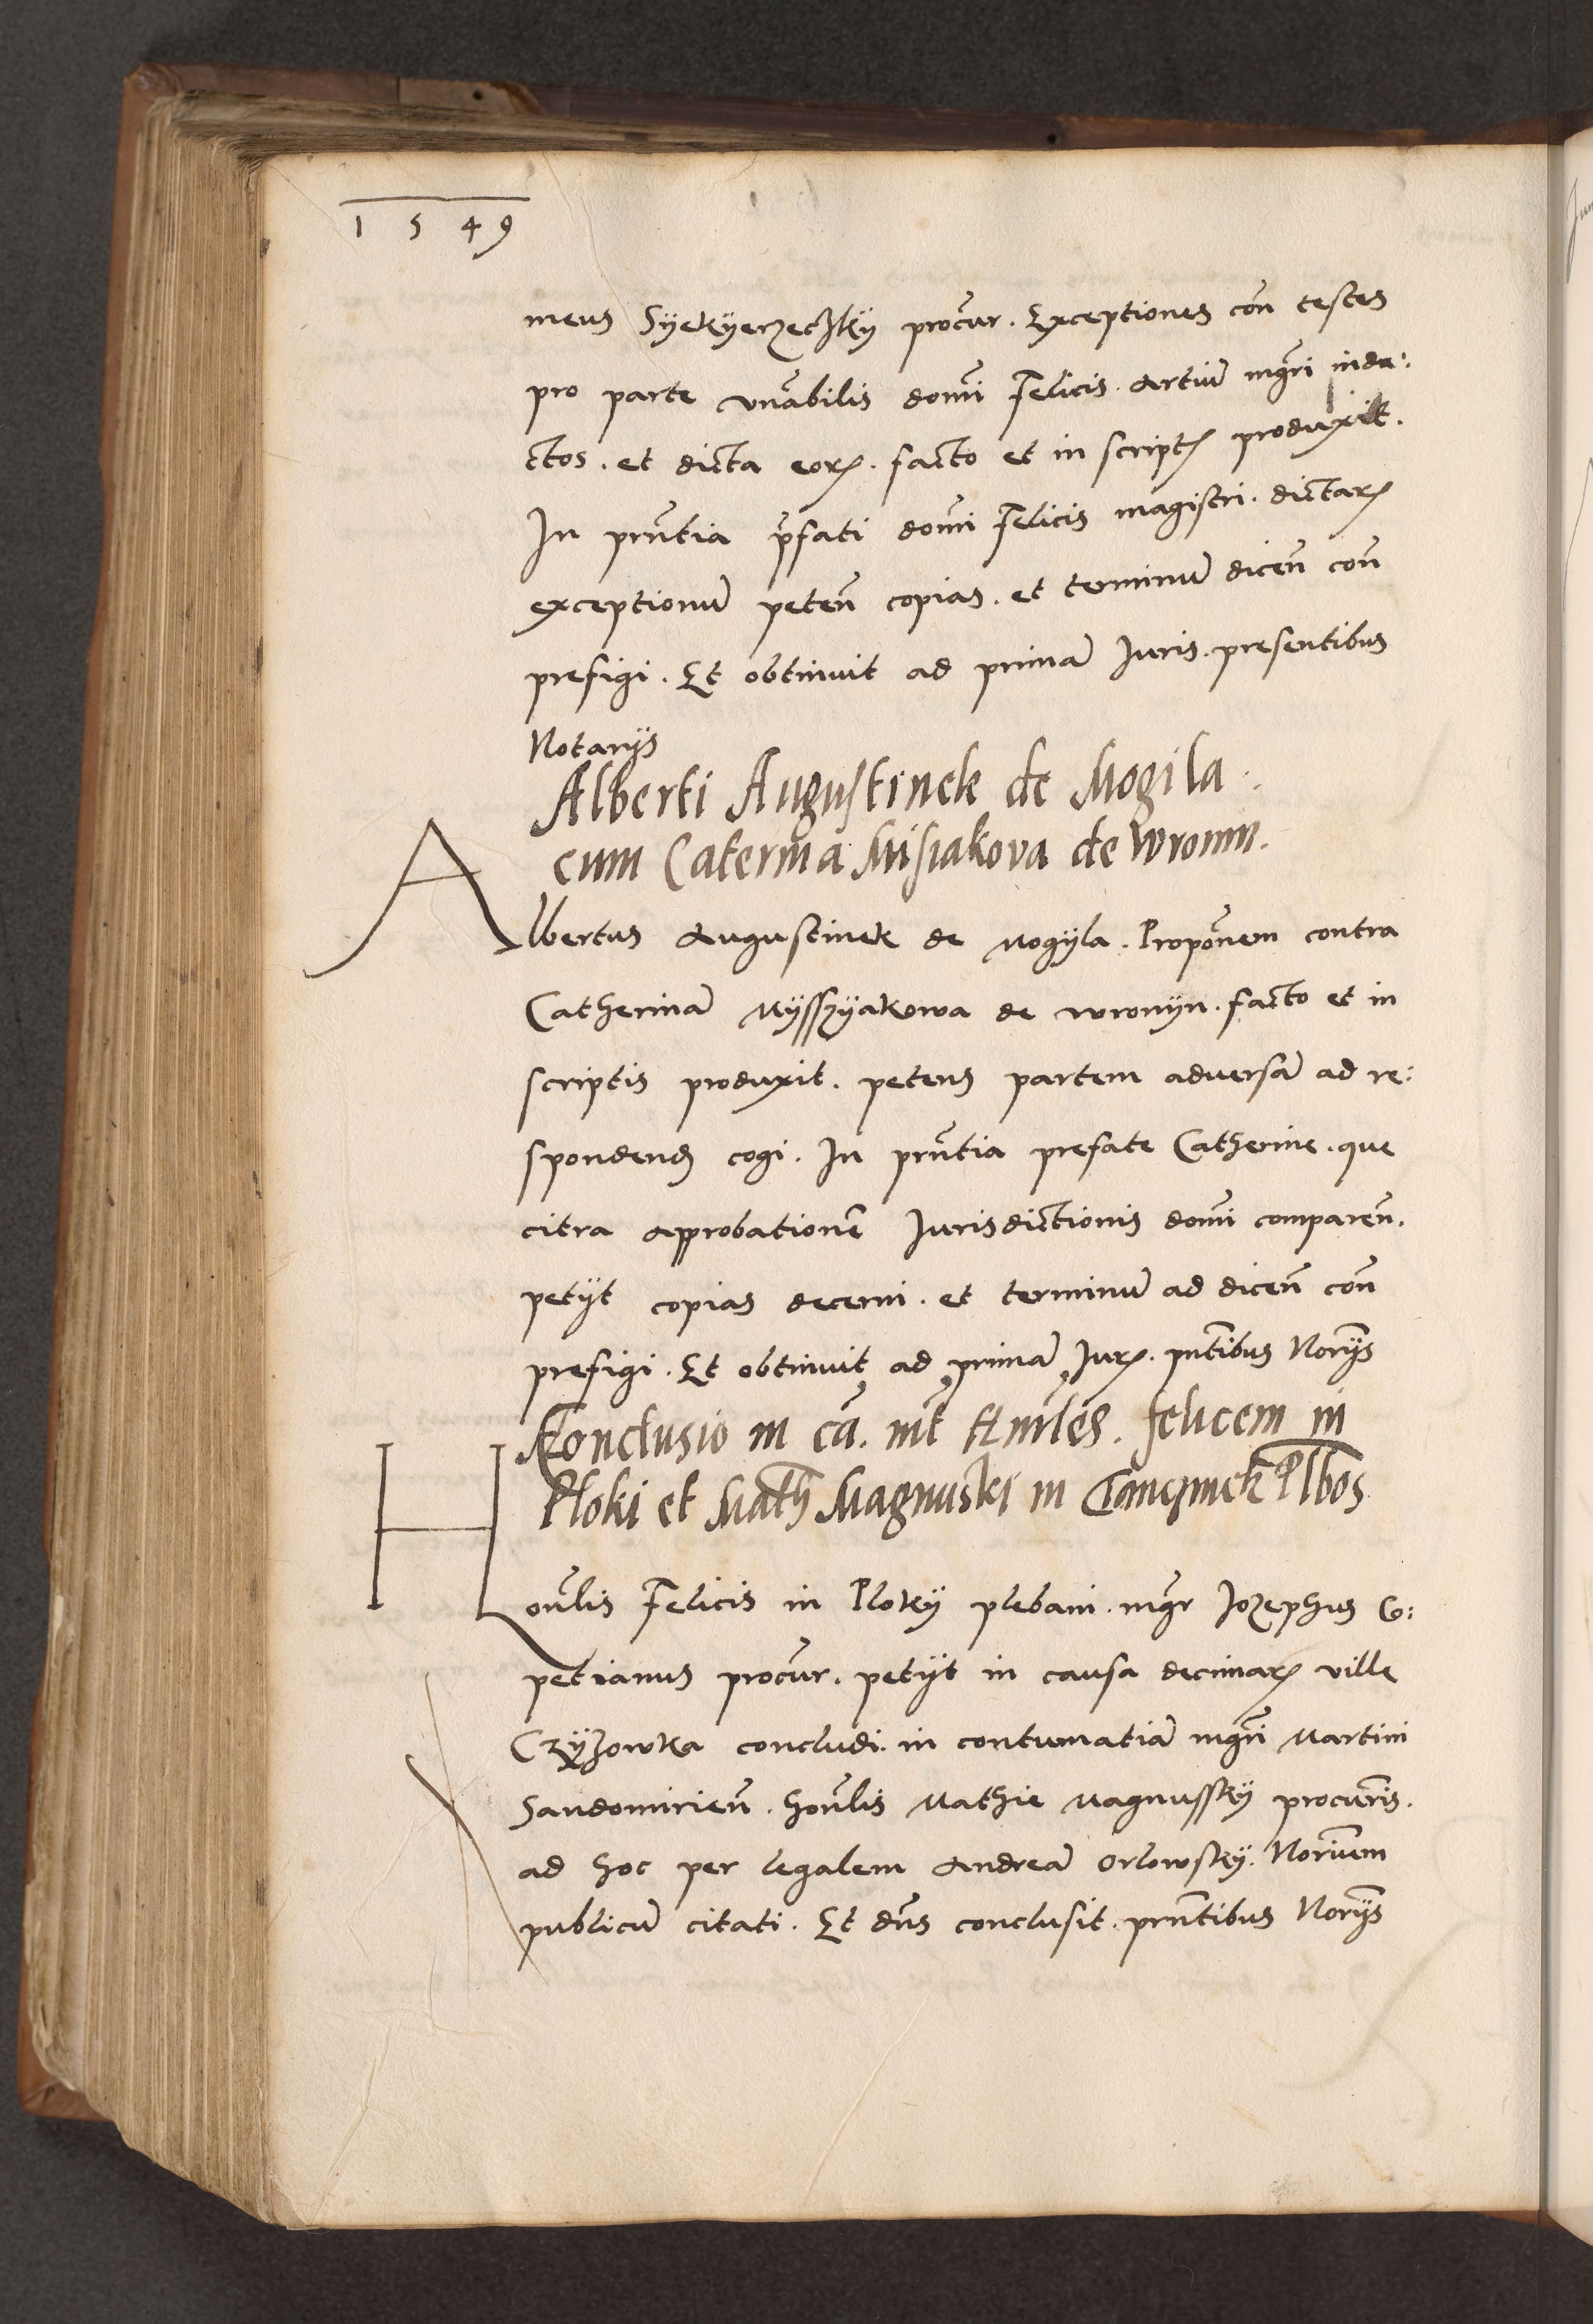 1549
meus Syekyerzeczky procur. Exceptiones con̄ testes
pro parte vn̄abilis domī Felicis artiū mgr̄i indu:
ctos. et dicta eorꝫ. facto et in scriptꝫ produxit.
In prn̄tia p̄fati domī Felicis magistri. dictarꝫ
exceptionū peteñ copias. et terminū diceñ con̄
prefigi. Et obtinuit ad primā Iuris. presentibus
Notarijs
Alberti Augustinek de Mogila.
cum Caterina Misiakova de Wronin.
Albertus Augustinek de Mogyla. Propon̄em contra
Catherinā Myssyakowa de Wronyn. facto et in
scriptis produxit. petens partem adversā ad re:
spondendꝫ cogi. In prn̄tia prefate Catherine. que
citra approbationē Iurisdictionis domī compareñ.
petijt copias decerni. et terminū ad diceñ con̄
prefigi. Et obtinuit ad primā Iurꝫ. pn̄tibus Norijs
Conclusio in cā. int̄ felicem in
Ploki et Math Magnuski in Plbos
Honl̄is Felicis in Ploky plebani. mgr̄ Jozephus Co:
petianus procur. petijt in causa decimarꝫ ville
Czyżowka concludi. in contumatiā mgr̄i Martini
Sandomirieñ. honl̄is Mathie Magnussky procuris.
ad hoc per legalem Andreā Orlowsky. Noriūem
publicū citati. Et dn̄s conclusit. prn̄tibus Norijs